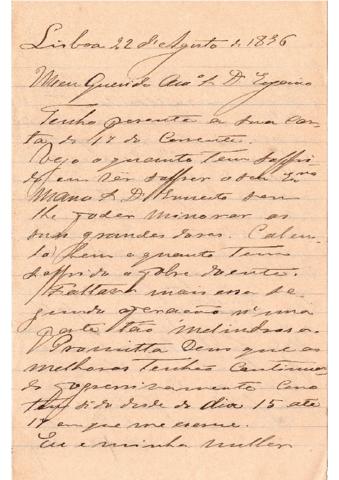 Lisboa 22 de Agosto de 1896
Meu Querido Amo Sr D. Eugenio
Tenho presente a sua car-
ta de 17 do Corrente.
Vejo o quanto tem soffri
do em ver soffrer o seu Exmo
Mano Sr D. Ernesto sem
lhe poder minorar as
suas grandes dores. Calcu-
lo bem o quanto tem
soffrido o pobre doente.
Faltava mais essa se
gunda operação n'uma
parte tão melindrosa.
Promitta Deus que as
melhoras tenhão continua
do progressivamente como
tem sido desde o dia 15 até
17 em que me escreve.
Eu e minha mulher